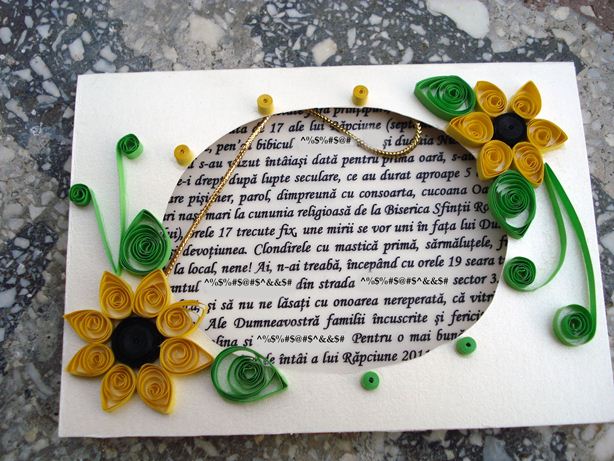 data 17 ale lui Răpciune (sept
pen'a bibicul ^%$%#$@# și duduia
s-au văzut întâiași dată pentru prima oară, s-au
i drept după lupte seculare, ce au durat aproape 5
pișicher, parol, dimpreună cu consoarta, cucoana
nași mari la cununia religioasă de la Biserica Sfinții
orele 17 trecute fix, une mirii se vor uni în fața lui
și devoțiunea. Clondirele cu mastică primă, sărmăluțele,
la local, nene! Ai, n-ai treabă, începând cu orele 19 seara
^%$%#$@#$^&&$# din strada ^%$%#$@#$^&&$# sector 3
și să nu ne lăsați cu onoarea nereperată, că
Ale Dumneavostră familii încuscrite și
și ^%$%#$@#$^&&$# Pentru o mai bună
de întâi a lui Răpciune